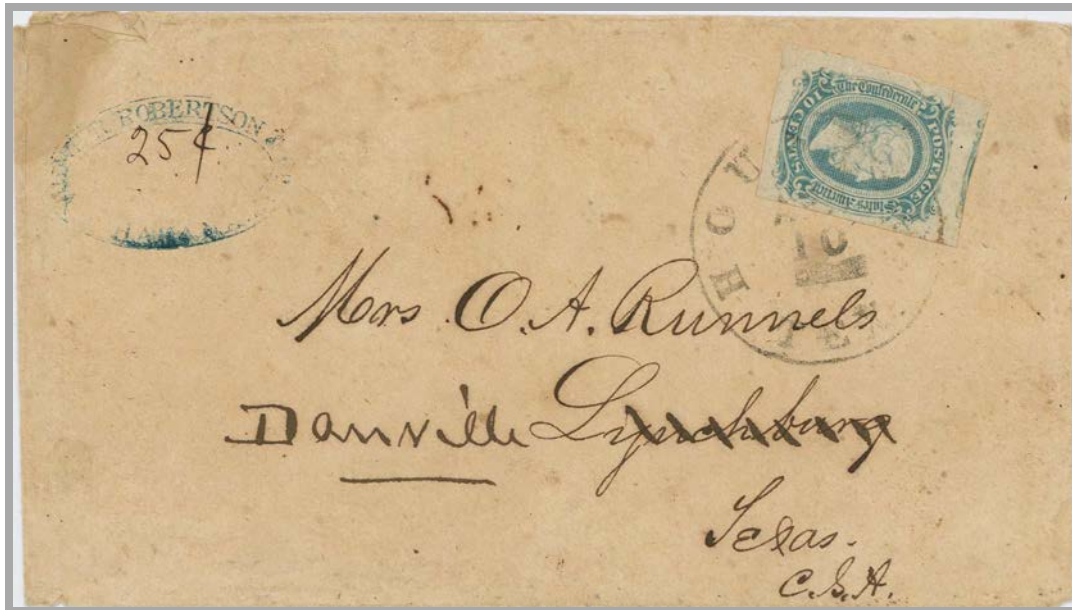 ROBERTSON
25¢
HAVANA
The Confederate
States America
POSTAGE
10 CENTS
HOU
TEX
10
Mrs O. A. Runnels
Danville Lynchburg
Texas.
C.S.A.